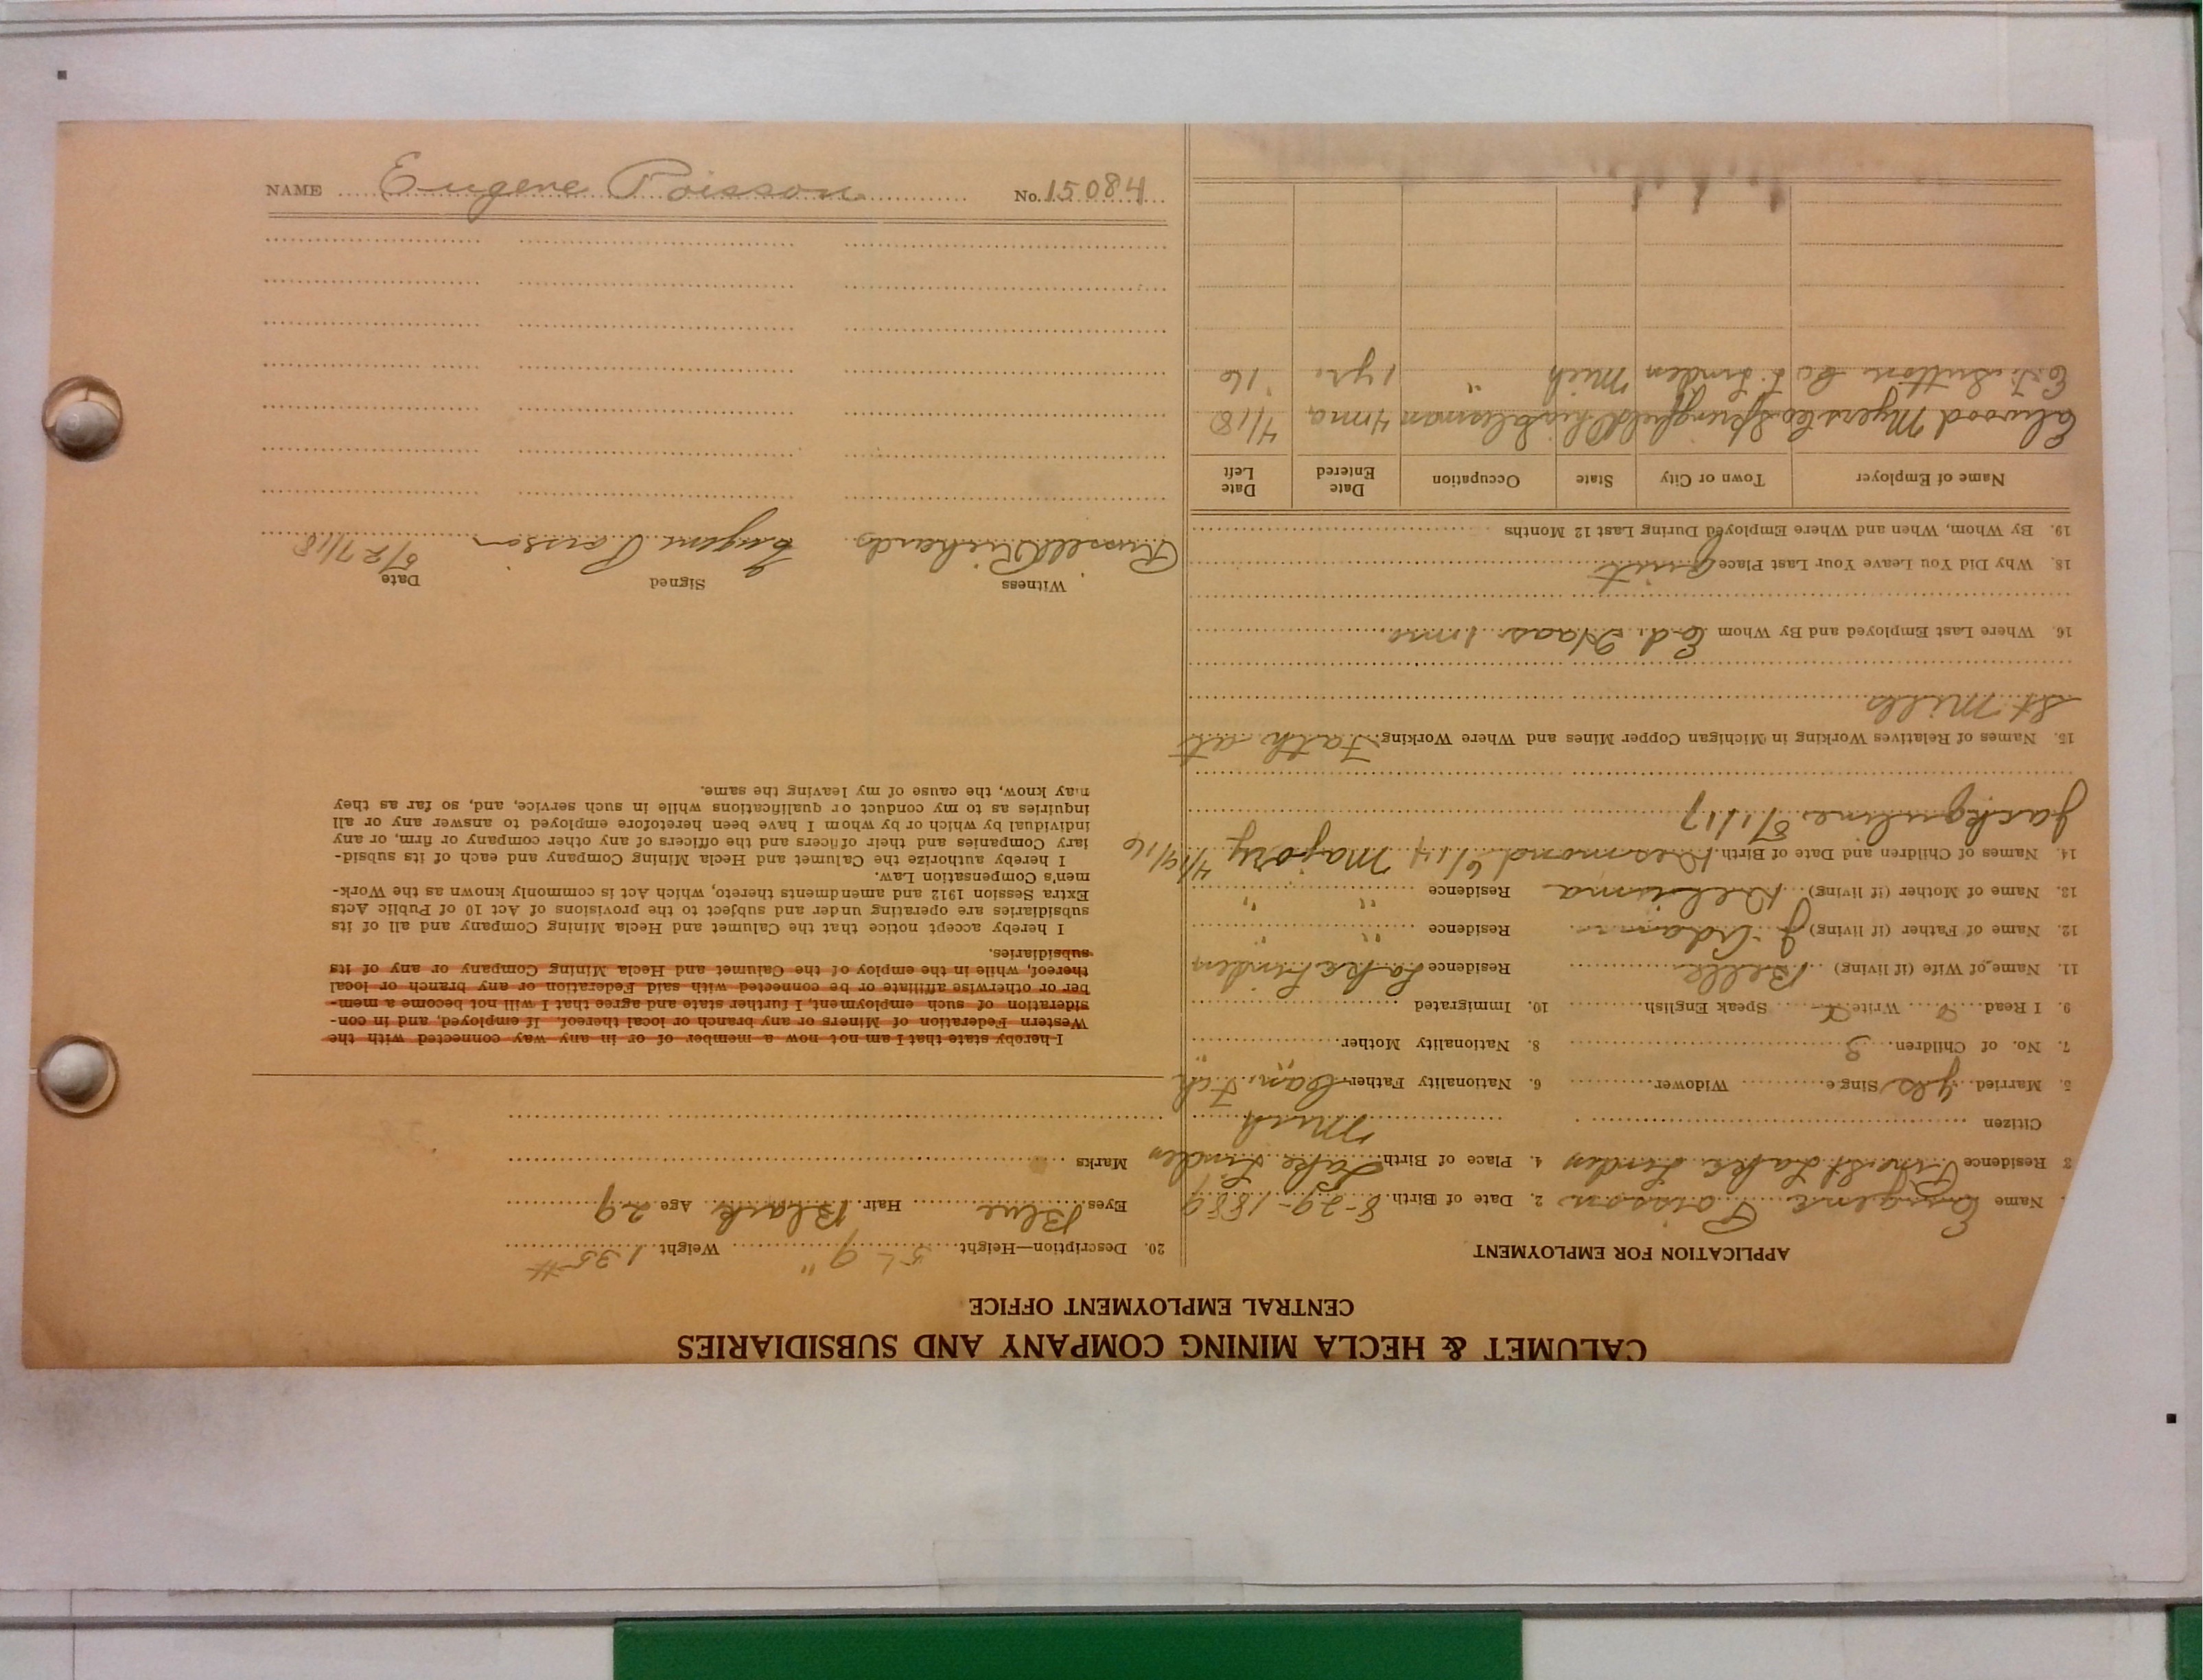 CALUMET & HECLA MINING COMPANY AND SUBSIDIARIES
CENTRAL EMPLOYMENT OFFICE
APPLICATION FOR EMPLOYMENT
Name Eugene Poisson 2. Date of Birth 8-29-1889
3 Residence Lake Linden 4. Place of Birth Lake Linden
Citizen Mich
5. Married yes Single Widower 6. Nationality Father Can. Fch
7. No. of Children 3 8. Nationality Mother " "
9. I Read Write Speak English 10. Immigrated
11. Name of Wife (if living) Belle Residence Lake Linden
12. Name of Father (if living) J. Adam Residence " "
13. Name of Mother (if living) Residence " "
14. Names of Children and Date of Birth Desmond 6/14 Majory 4/19/16
Jackquline 8/1/17
15. Names of Relatives Working in Michigan Copper Mines and Where Working Fath at
St Mills
16. Where Last Employed and By Whom Ed. Haas 1 mo
18. Why Did You Leave Your Last Place quit
19. By Whom, When and Where Employed During Last 12 Months
Name of Employer Town or City State Occupation Date Entered Date Left
Elwood Myers Co Springfield Salesman 4 mo 4/18
Sutton Co L. Linden Mich " 1 yr. '16
20. Description—Height 5' 9" Weight 135#
Eyes Blue Hair Black Age 29
Marks
I hereby state that I am not now a member of or in any way connected with the
Western Federation of Miners or any branch or local thereof. If employed, and in con-
sideration of such employment, I further state and agree that I will not become a mem-
ber or otherwise affiliate or be connected with said Federation or any branch or local
thereof, while in the employ of the Calumet and Hecla Mining Company or any of its
subsidiaries.
I hereby accept notice that the Calumet and Hecla Mining Company and all of its
subsidiaries are operating under and subject to the provisions of Act 10 of Public Acts
Extra Session 1912 and amendments thereto, which Act is commonly known as the Work-
men's Compensation Law.
I hereby authorize the Calumet and Hecla Mining Company and each of its subsid-
iary Companies and their officers and the officers of any other company or firm, or any
individual by which or by whom I have been heretofore employed to answer any or all
inquiries as to my conduct or qualifications while in such service, and, so far as they
may know, the cause of my leaving the same.
Witness Signed Date
Russell Richards Eugene Poisson 5/27/18
NAME Eugene Poisson No. 15084